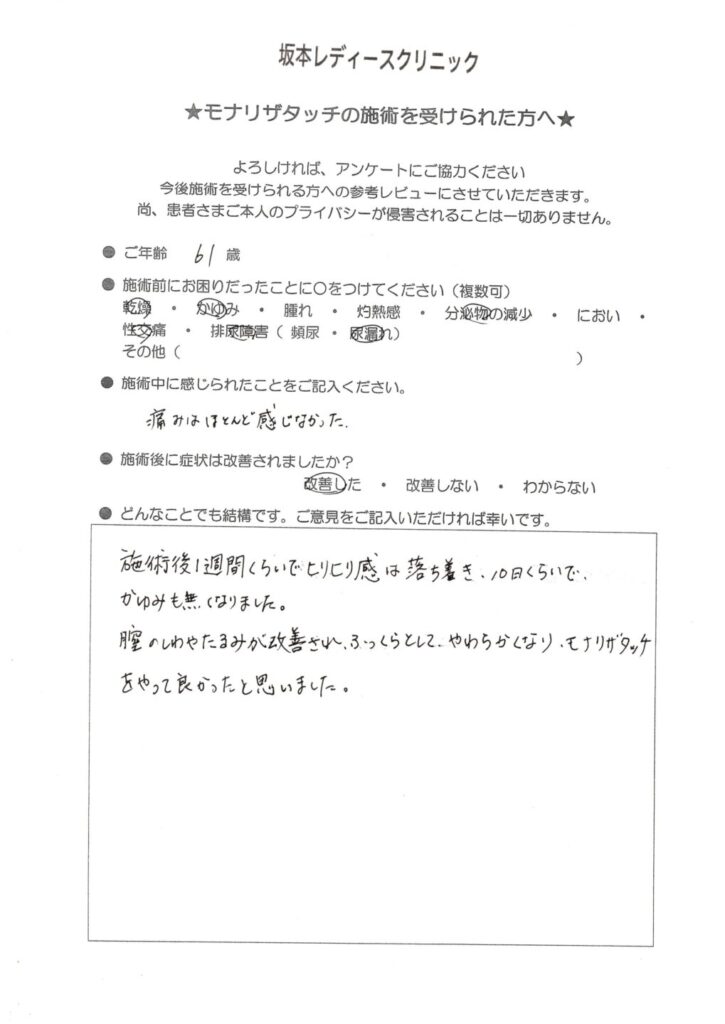 坂本レディースクリニック
★モナリザタッチの施術を受けられた方へ★
よろしければ、アンケートにご協力ください
今後施術を受けられる方への参考レビューにさせていただきます。
尚、患者さまご本人のプライバシーが侵害されることは一切ありません。
● ご年齢 61 歳
● 施術前にお困りだったことに〇をつけてください（複数可）
乾燥 ・ かゆみ ・ 腫れ ・ 灼熱感 ・ 分泌物の減少 ・ におい ・
性交痛 ・ 排尿障害（ 頻尿 ・ 尿漏れ）
その他（ ）
● 施術中に感じられたことをご記入ください。
痛みはほとんど感じなかった.
● 施術後に症状は改善されましたか？
改善した ・ 改善しない ・ わからない
● どんなことでも結構です。ご意見をご記入いただければ幸いです。
施術後1週間くらいでヒリヒリ感は落ち着き、10日くらいで、
かゆみも無くなりました。
膣のしわやたるみが改善され、ふっくらとして、やわらかくなり、モナリザタッチ
をやって良かったと思いました。